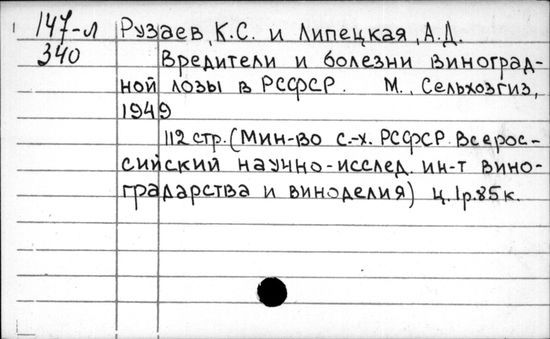 147-л Рузаев, К.С. и Липецкая, А.Д.
340 Вредители и болезни виноград-
ной лозы в РСФСР. М., Сельхозгиз,
1949
112 стр. (Мин-во с.-х. РСФСР. Всерос-
сийский научно-исслед. ин-т вино-
градарства и виноделия) ц. 1р. 85к.